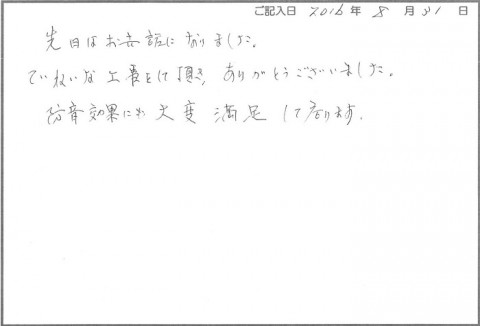 ご記入日 2016年 8月 31日
先日はお世話になりました。
ていねいな工事をして頂き、ありがとうございました。
防音効果にも大変満足して居ります。